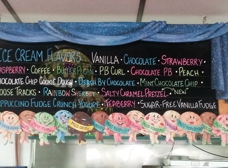 ICE CREAM FLAVORS Vanilla · Chocolate · Strawberry
Raspberry · Coffee · Butter Pecan · P.B. Curl · Chocolate P.B. · Peach ·
Chocolate Chip Cookie Dough · Death By Chocolate · Mint Chocolate Chip
Moose Tracks · Rainbow Sherbet · Salty Caramel Pretzel · "New"
Cappuccino Fudge Crunch Yogurt · Sugar-Free Vanilla Fudge